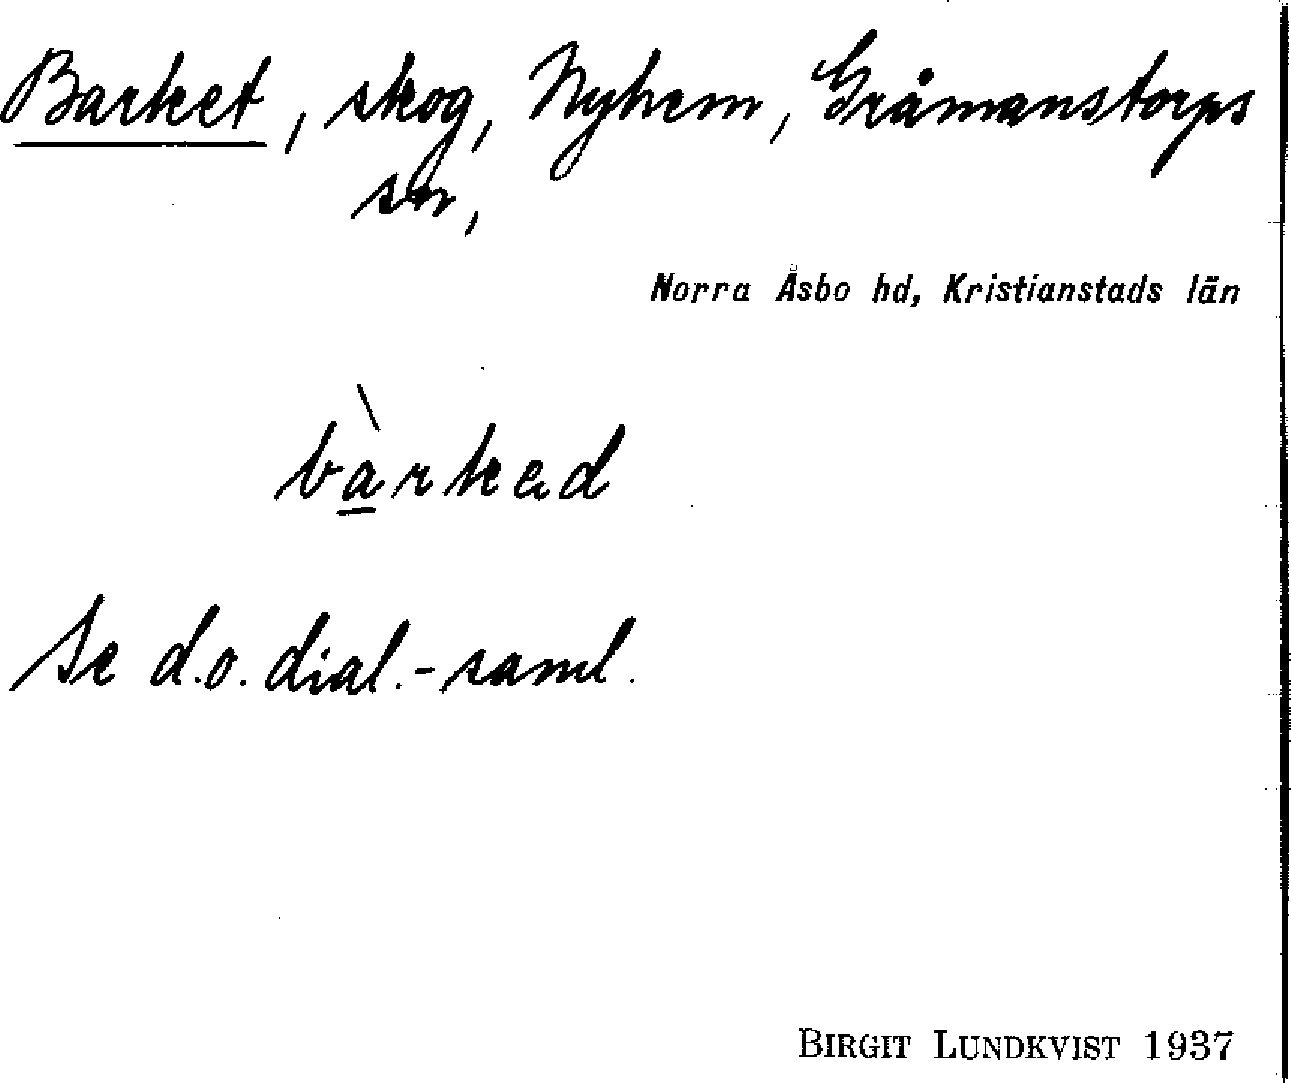 Barket, skog, Nyhem, Gråmanstorps
sn,
Norra Åsbo hd, Kristianstads län
bàrkəd
Se d.o. dial.-saml.
BIRGIT LUNDKVIST 1937